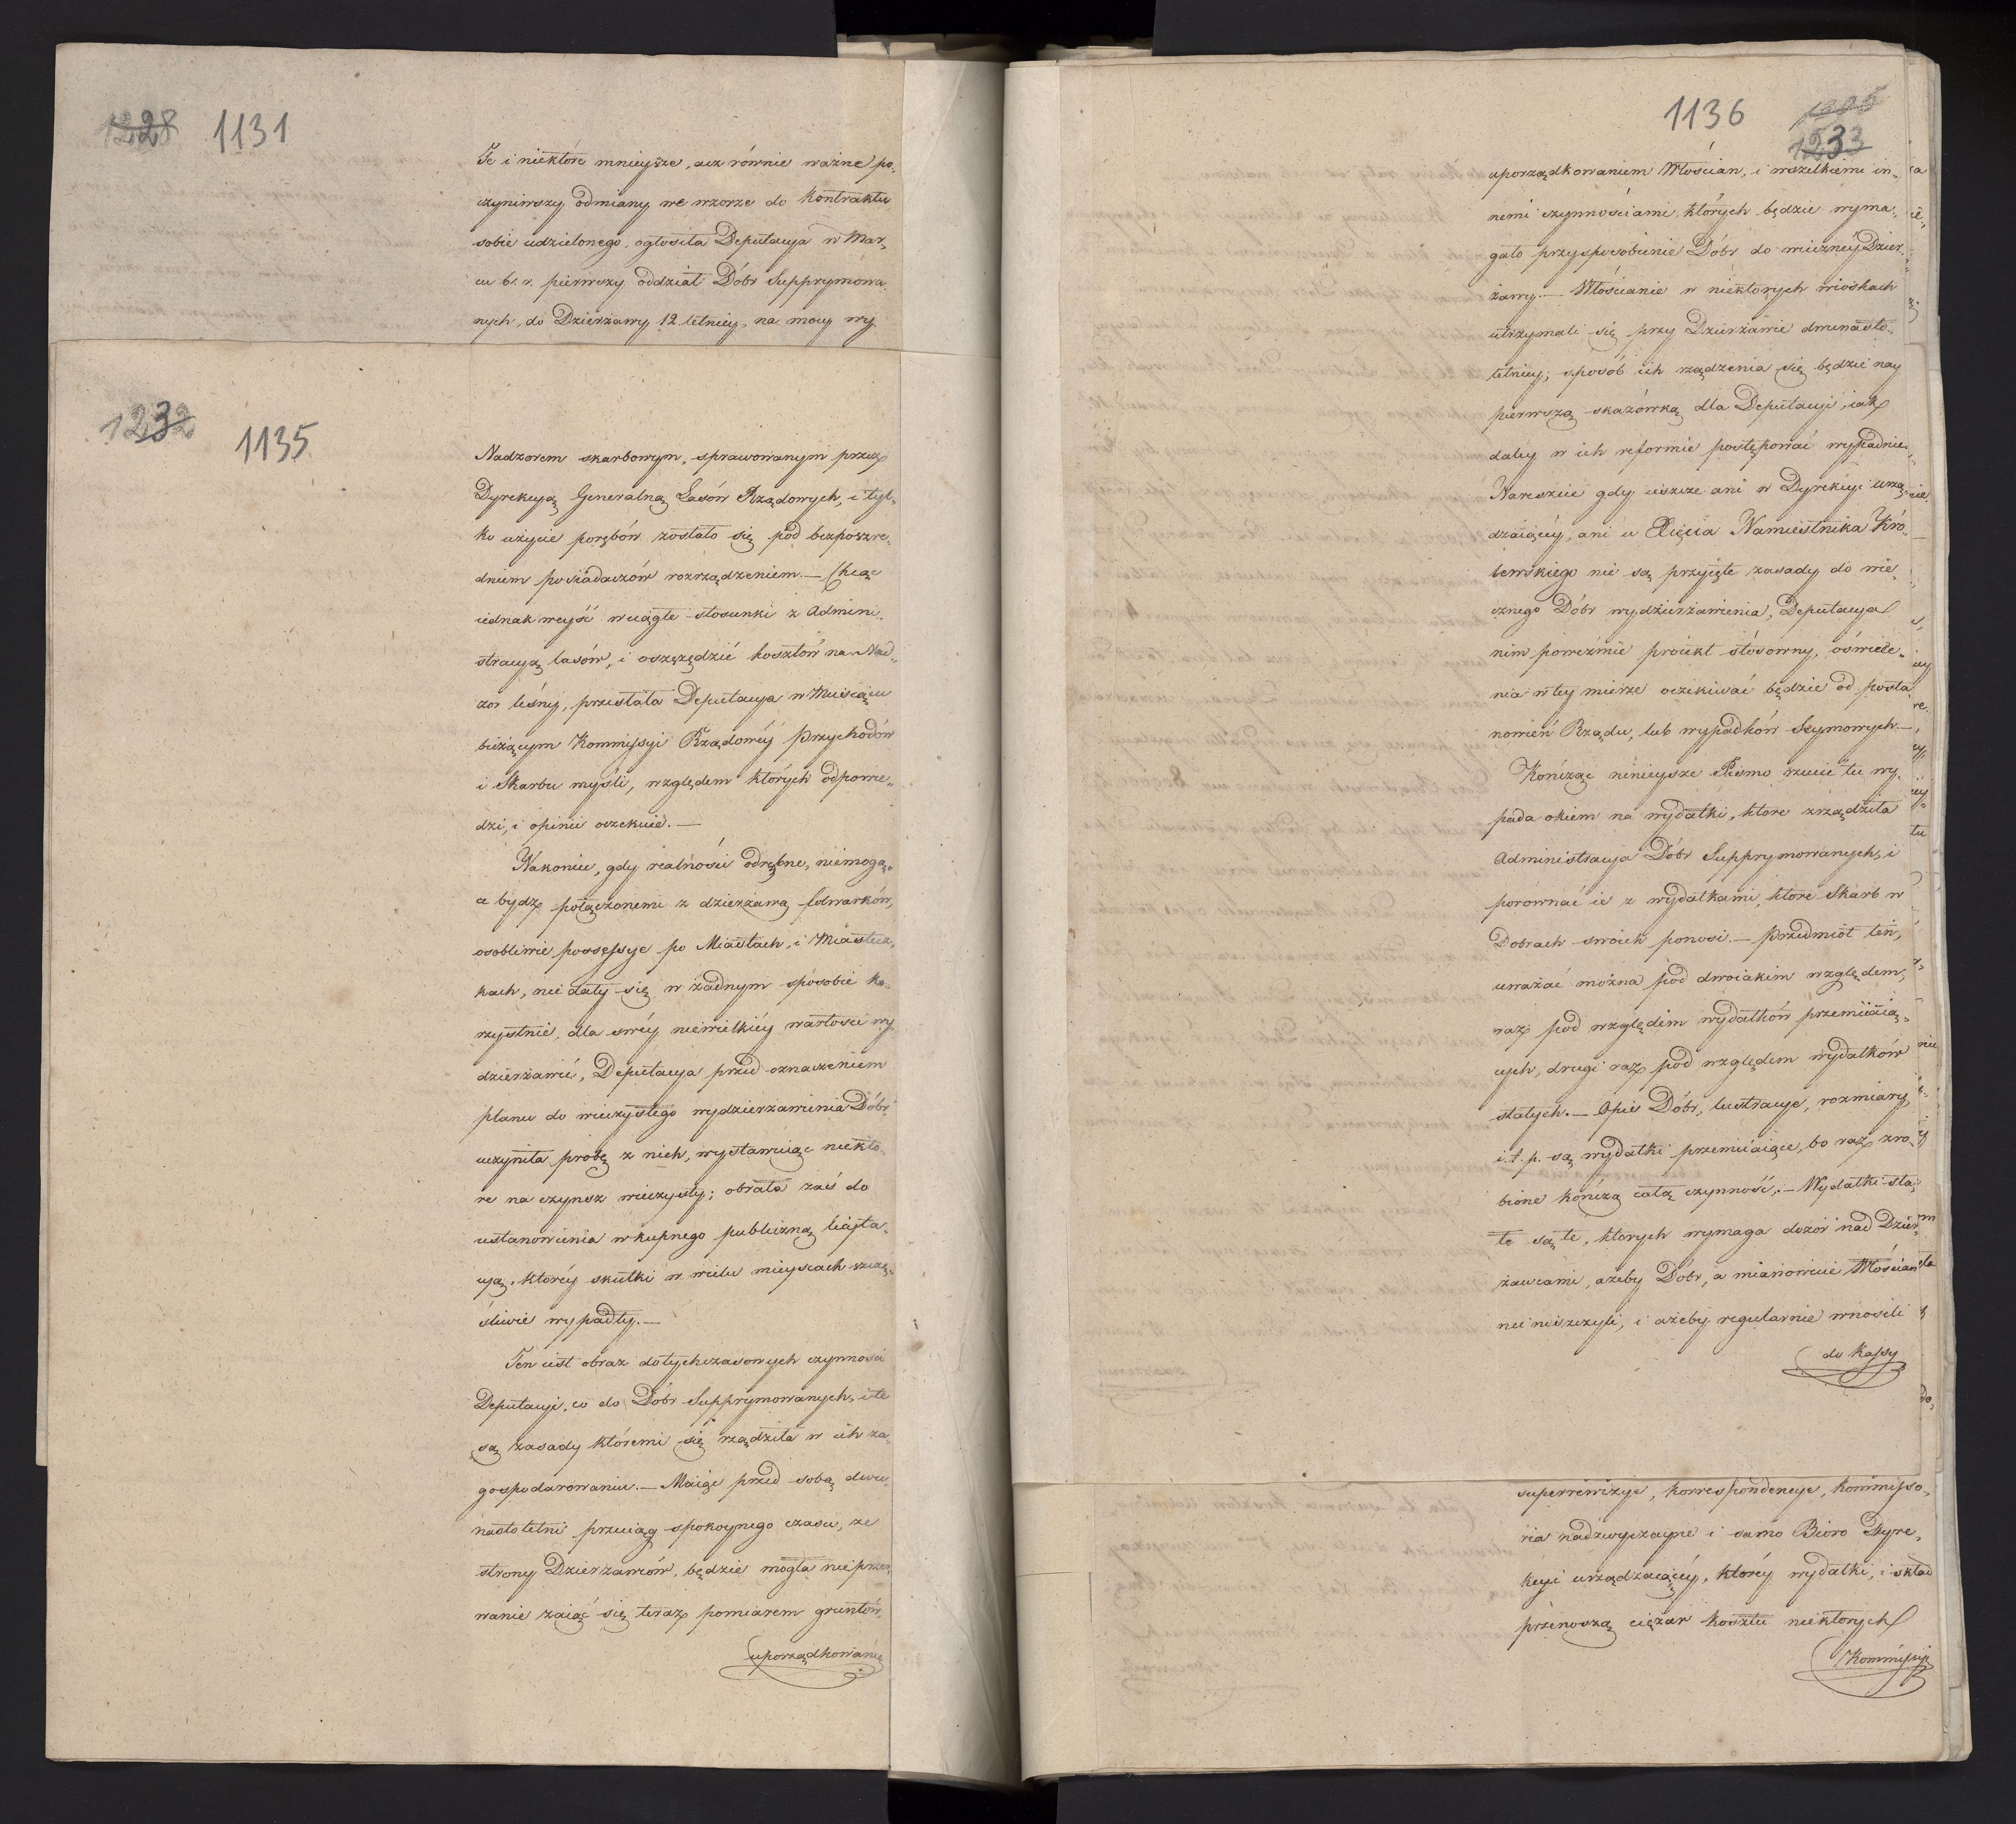 1228 1131
Te i niektóre mnieysze, acz równie ważne po„
czyniwszy odmiany we wzorze do Kontraktu
sobie udzielonego, ogłosiła Deputacya w Mar„
cu b. r. pierwszy oddział Dóbr Supprymowa„
nych, do Dzierżawy 12 letniey, na mocy wy
1232 1135
Nadzorem skarbowym, sprawowanym przez
Dyrekcyą Generalną Lasów Rządowych, i tyl„
ko użycie porębów zostało się pod bezpośre„
dniem posiadaczów rozrządzeniem. — Chcąc
iednak weyść w ciągłe stosunki z Admini„
stracyą lasów, i oszczędzić kosztów na Nad„
zor leśny, przesłała Deputacya w Miesiącu
bieżącym Kommissyi Rządowéy Przychodów
i Skarbu myśli, względem których odpowie„
dzi, i opinii oczekuie. —
Nakoniec, gdy realności odrębne, niemogą„
ce bydź połączonemi z dzierżawą folwarków,
osobliwie possessye po Miastach, i Miastecz„
kach, nie dały się w żadnym sposobie ko„
rzystnie, dla swéy niewielkiéy wartości wy„
dzierżawić, Deputacya przed oznaczeniem
planu do wieczystego wydzierżawienia Dóbr
uczyniła probę z nich, wystawiąc niektó„
re na czynsz wieczysty; obrała zaś do
ustanowienia wkupnego publiczną licyta„
cyą, któréy skutki w wielu mieyscach szczę„
śliwie wypadły. —
Ten iest obraz dotychczasowych czynności
Deputacyi, co do Dóbr Supprymowanych, i te
są zasady któremi się rządziła w ich za„
gospodarowaniu. — Maiąc przed sobą dwu„
nastoletni przeciąg spokoynego czasu, ze
strony Dzierżawców, będzie mogła nieprzer„
wanie zaiąć się teraz pomiarem gruntów,
uporządkowanie
1136 1233
uporządkowaniem Włościan, i wszelkiemi in„
nemi czynnościami, których będzie wyma„
gało przysposobienie Dóbr do wiecznéy Dzier„
żawy. — Włościanie w niektorych wioskach
utrzymali się przy Dzierżawie dwunasto„
letniey; sposób ich rządzenia się będzie nay
pierwszą skazówką dla Deputacyi, iak
daléy w ich reformie postępować wypadnie.
Nareszcie gdy ieszcze ani w Dyrekcyi urzą„
dzaiącéy, ani u Xięcia Namiestnika Kró„
lewskiego nie są przyięte zasady do wie„
cznego Dóbr wydzierżawienia, Deputacya
nim poweźmie proiekt stósowny, oświece„
nia w téy mierze oczekiwać będzie od posta„
nowień Rządu, lub wypadków Seymowych. —
Kończąc ninieysze Pismo rzucić tu wy„
pada okiem na wydatki, które zrządziła
Administracya Dóbr Supprymowanych, i
porównać ie z wydatkami, które Skarb w
Dobrach swoich ponosi. — Przedmiot ten,
uważać można pod dwoiakim względem,
raz pod względem wydatków przemiiaią„
cych, drugi raz pod względem wydatków
stałych. — Opis Dóbr, lustracye, rozmiary
i. t. p. są wydatki przemiiaiące, bo raz zro„
bione kończą całą czynność. — Wydatki sta„
łe są te, ktorych wymaga dozór nad Dzier„
żawcami, ażeby Dóbr, a mianowicie Włościan
nie niszczyli, i ażeby regularnie wnosili
do Kassy
superrewizye, korrespondencye, kommisso„
ria nadzwyczayne i samo Bióro Dyre„
kcyi urządzaiącéy, któréy wydatki, i skład
przenoszą ciężar kosztu niektorych
Kommissyi